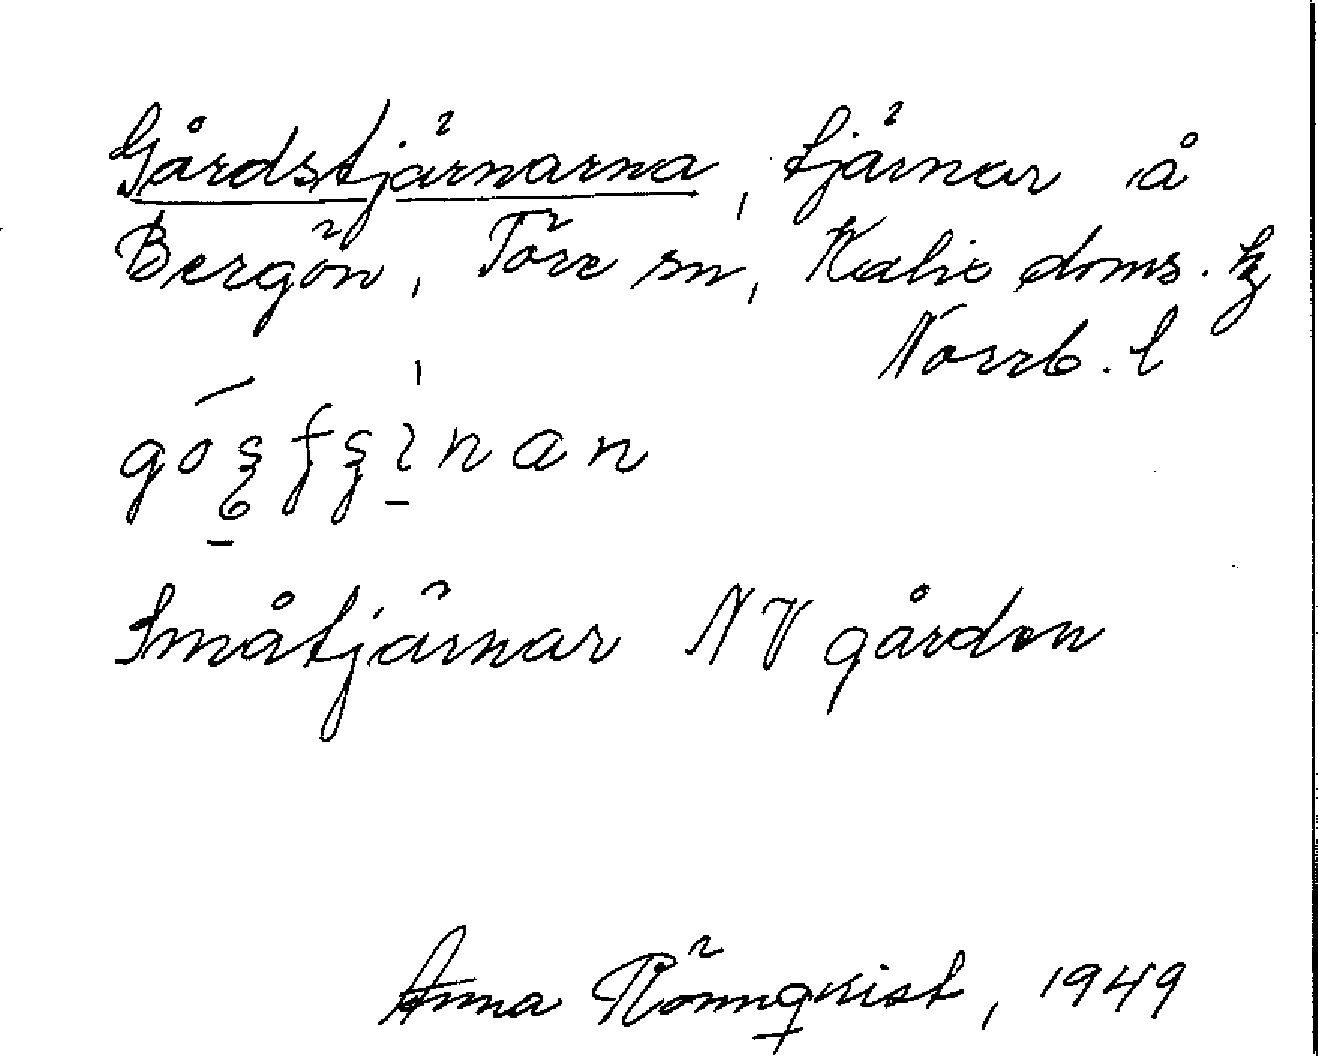 Gårdstjärnarna, tjärnar å
Bergön, Töre sn, Kalix doms. tg
Norrb. l
Småtjärnar NV gården
Anna Rönnqvist, 1949